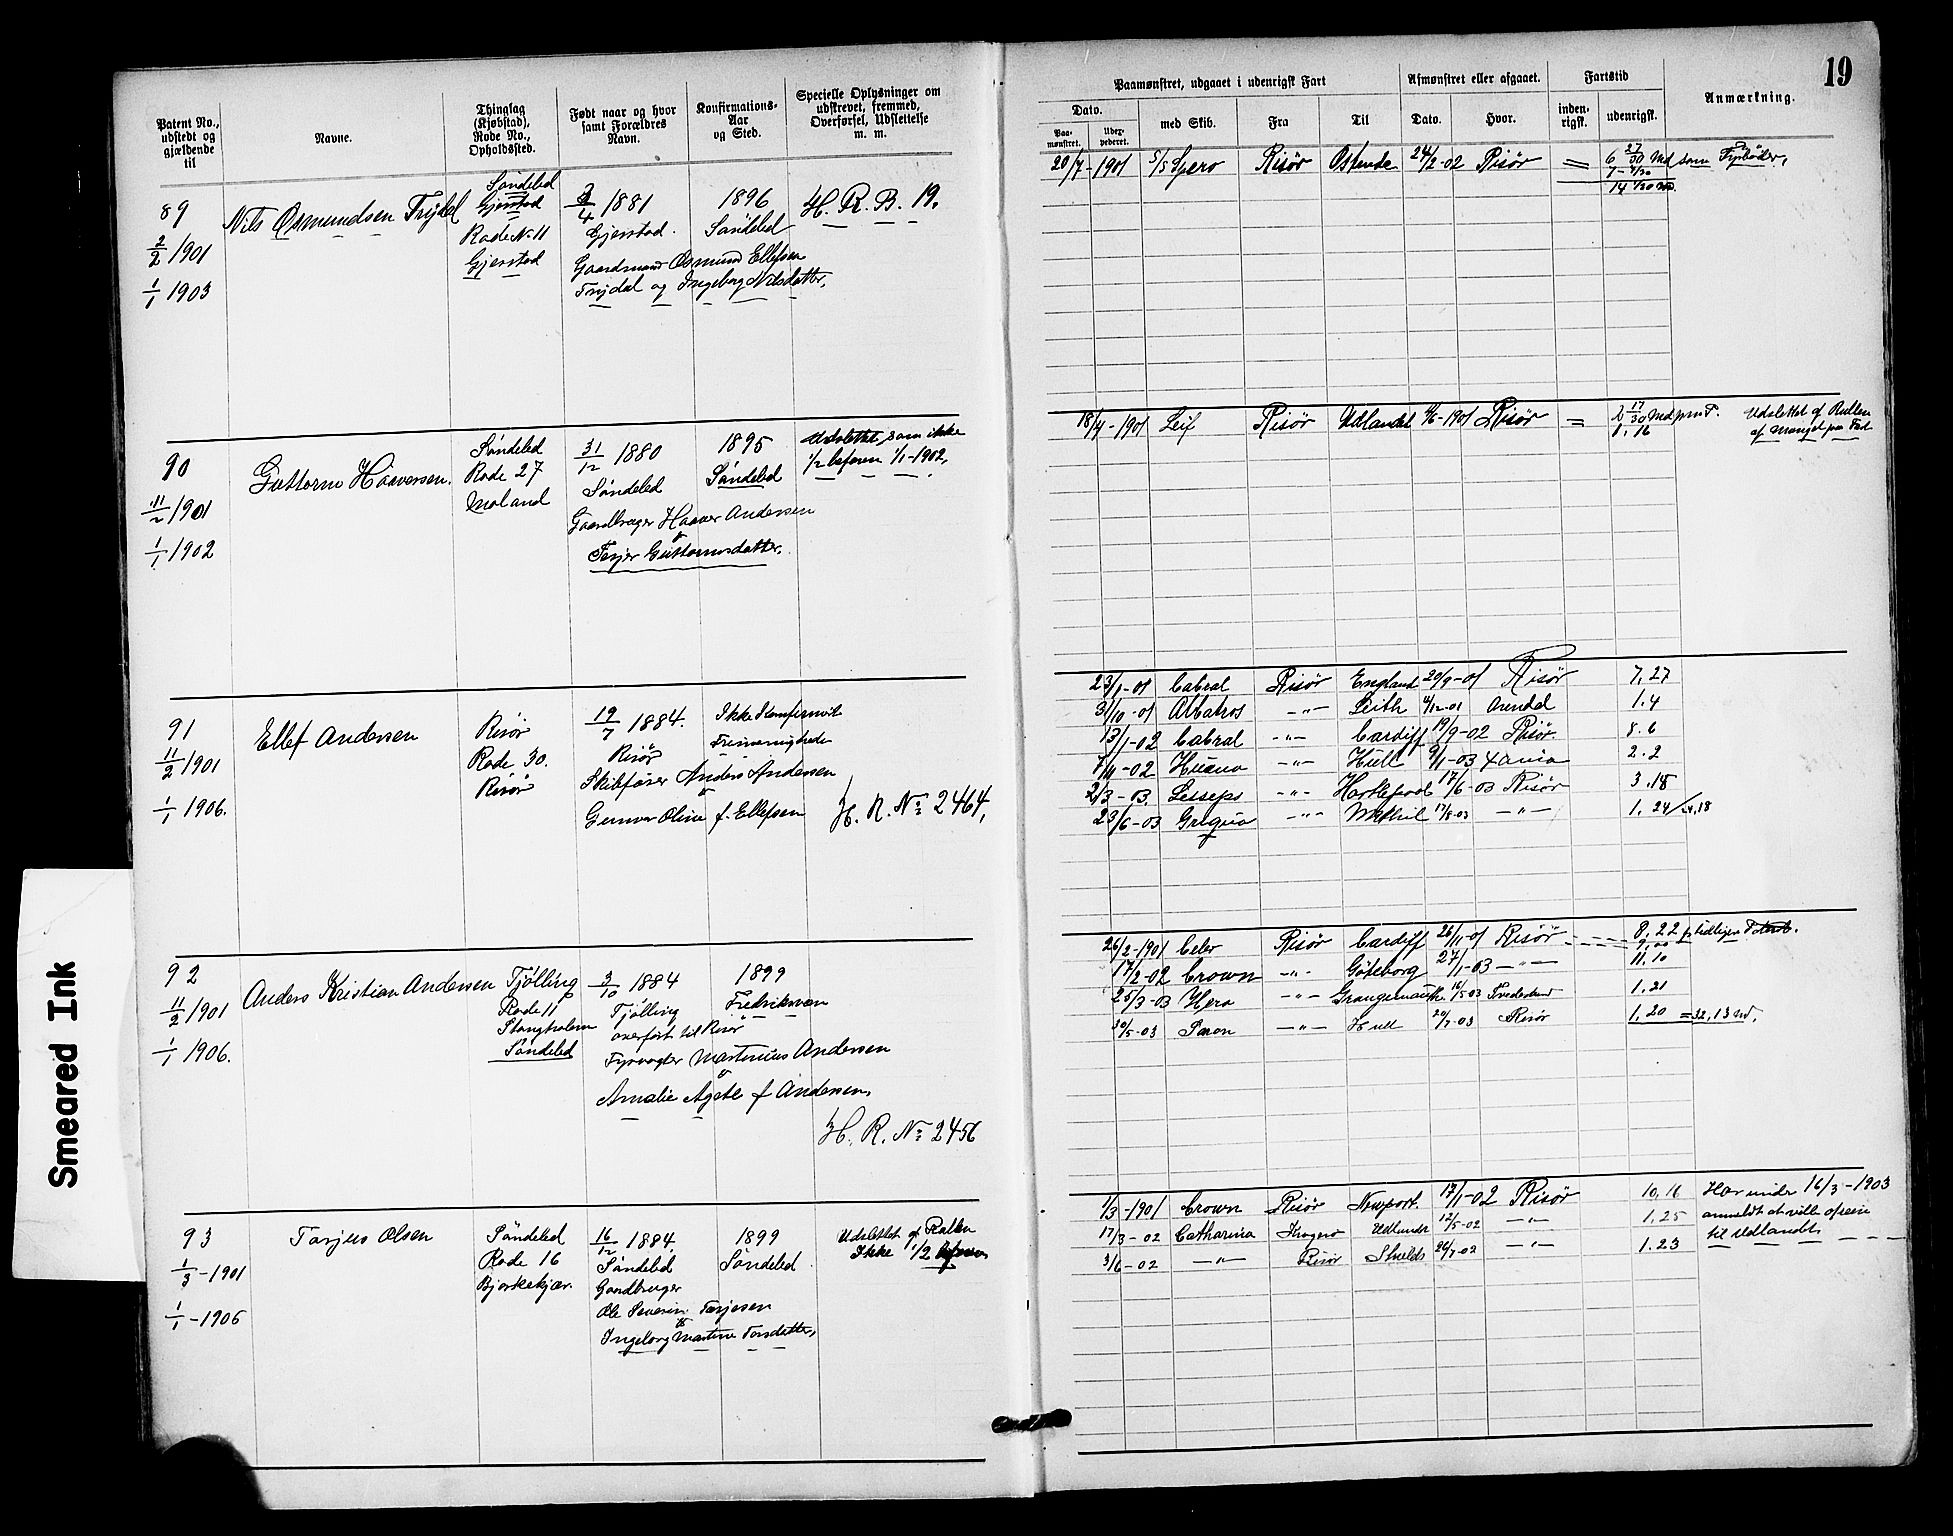 19
Patent No., udstedt og gjældende til
Navne.
Thinglag (Kjøbstad), Rode No., Opholdssted.
Født naar og hvor samt Forældres Navn.
Konfirmations-Aar og Sted.
Specielle Oplysninger om udskrevet, fremmed, Overførsel, Udslettelse m. m.
Paamønstret, udgaaet i udenrigsk Fart
Afmønstret eller afgaaet.
Fartstid
Anmærkning.
Dato.
Paa-mønstret.
Uder-pederet.
med Skib.
Fra
Til
Dato.
Hvor.
inden-rigsk.
udenrigsk.
89
2/2 1901
1/1 1903
Nils Osmundsen Trydal
Søndeled
Gjerstad
Rode No 11
Gjerstad
3/4 1881
Gjerstad.
Gaardmand Osmund Ellefsen
Trydal og Ingeborg Nilsdatter,
1896
Søndeled
H. R. B. 19.
20/7-1901 S/S Spero Risør Ostende 24/2-02 Risør = 6 27/30 Md som Fyrbøder,
90
11/2 1901
1/1 1902
Guttorm Haaversen.
Søndeled
Rode 27
Moland
31/12 1880
Søndeled
Gaardbruger Haaver Andersen
&
Tarjer Guttormsdatter.
1895
Søndeled
Udslettet, som ikke
1/2 befaren 1/1-1902,
18/4-1901 Leif Risør Udlandet 4/6-1901 Risør = 2 17/30 Md
1,16
Udslettet af Rullen
af Mangel paa Fart
91
11/2 1901
1/1 1906.
Ellef Andersen
Risør
Rode 30.
Risør
19/7 1884.
Risør
Skibsfører Anders Andersen
&
Gunvor Oline f. Ellefsen
Ikke Konfirmeret
H. R. No 2464,
23/1-01 Cabral Risør England 20/9-01 Risør 7,27
3/10-01 Albatros -"- Leith 4/12-01 Arendal 1.4
13/1-02 Cabral -"- Cardiff 19/9-02 Risør. 8.6
-"- Hull 9/1-03 Xania 2.2
2/3-03 Lesseps -"- Hartlepool 17/6-03 Risør 3.15
23/6-03 Griqua -"- Methil 17/8-03 -"- 1.24/24,18
92
11/2 1901
1/1 1906.
Anders Kristian Andersen
Tjølling
Rode 11
Stangholm
Søndeled
3/10 1884
Tjølling
overført til Risør
Fyrvogter Martinius Andersen
&
Amalie Agate f Andersen,
1899
Fredriksvern
H. R. No 2456
26/2-1901 Celer Risør Cardiff 26/11-01 Risør 8.22
17/2-02 Crown -"- Göteborg 27/1-03 -"- 11.10
25/3-03 Hera -"- Grangemouth 16/5-03 Tvedestrand 1.21
30/5-03 -"- Hull 20/7-03 Risør 1.20 =32,13 Md,
93
1/3-1901
1/1-1906
Tarjus Olsen
Søndeled
Rode 16
Bjorkekjær.
16/12 1884.
Søndeled
Gaardbruger
Ole Severin Tarjesen
&
Ingeborg Martine Torsdatter,
1899
Søndeled
Udslettet af Rullen
Ikke 1/2 befaren
1/3-1901 Crown Risør Newport. 17/1-02 Risør 10,16
17/3-02 Catharina Kragerø Udlandet 12/5-02 -"- 1.25
3/6-02 -"- Risør Shields 26/7-02 -"- 1.23
Har under 16/3-1903
anmeldt at ville afreise
til Udlandet
Smeared Ink